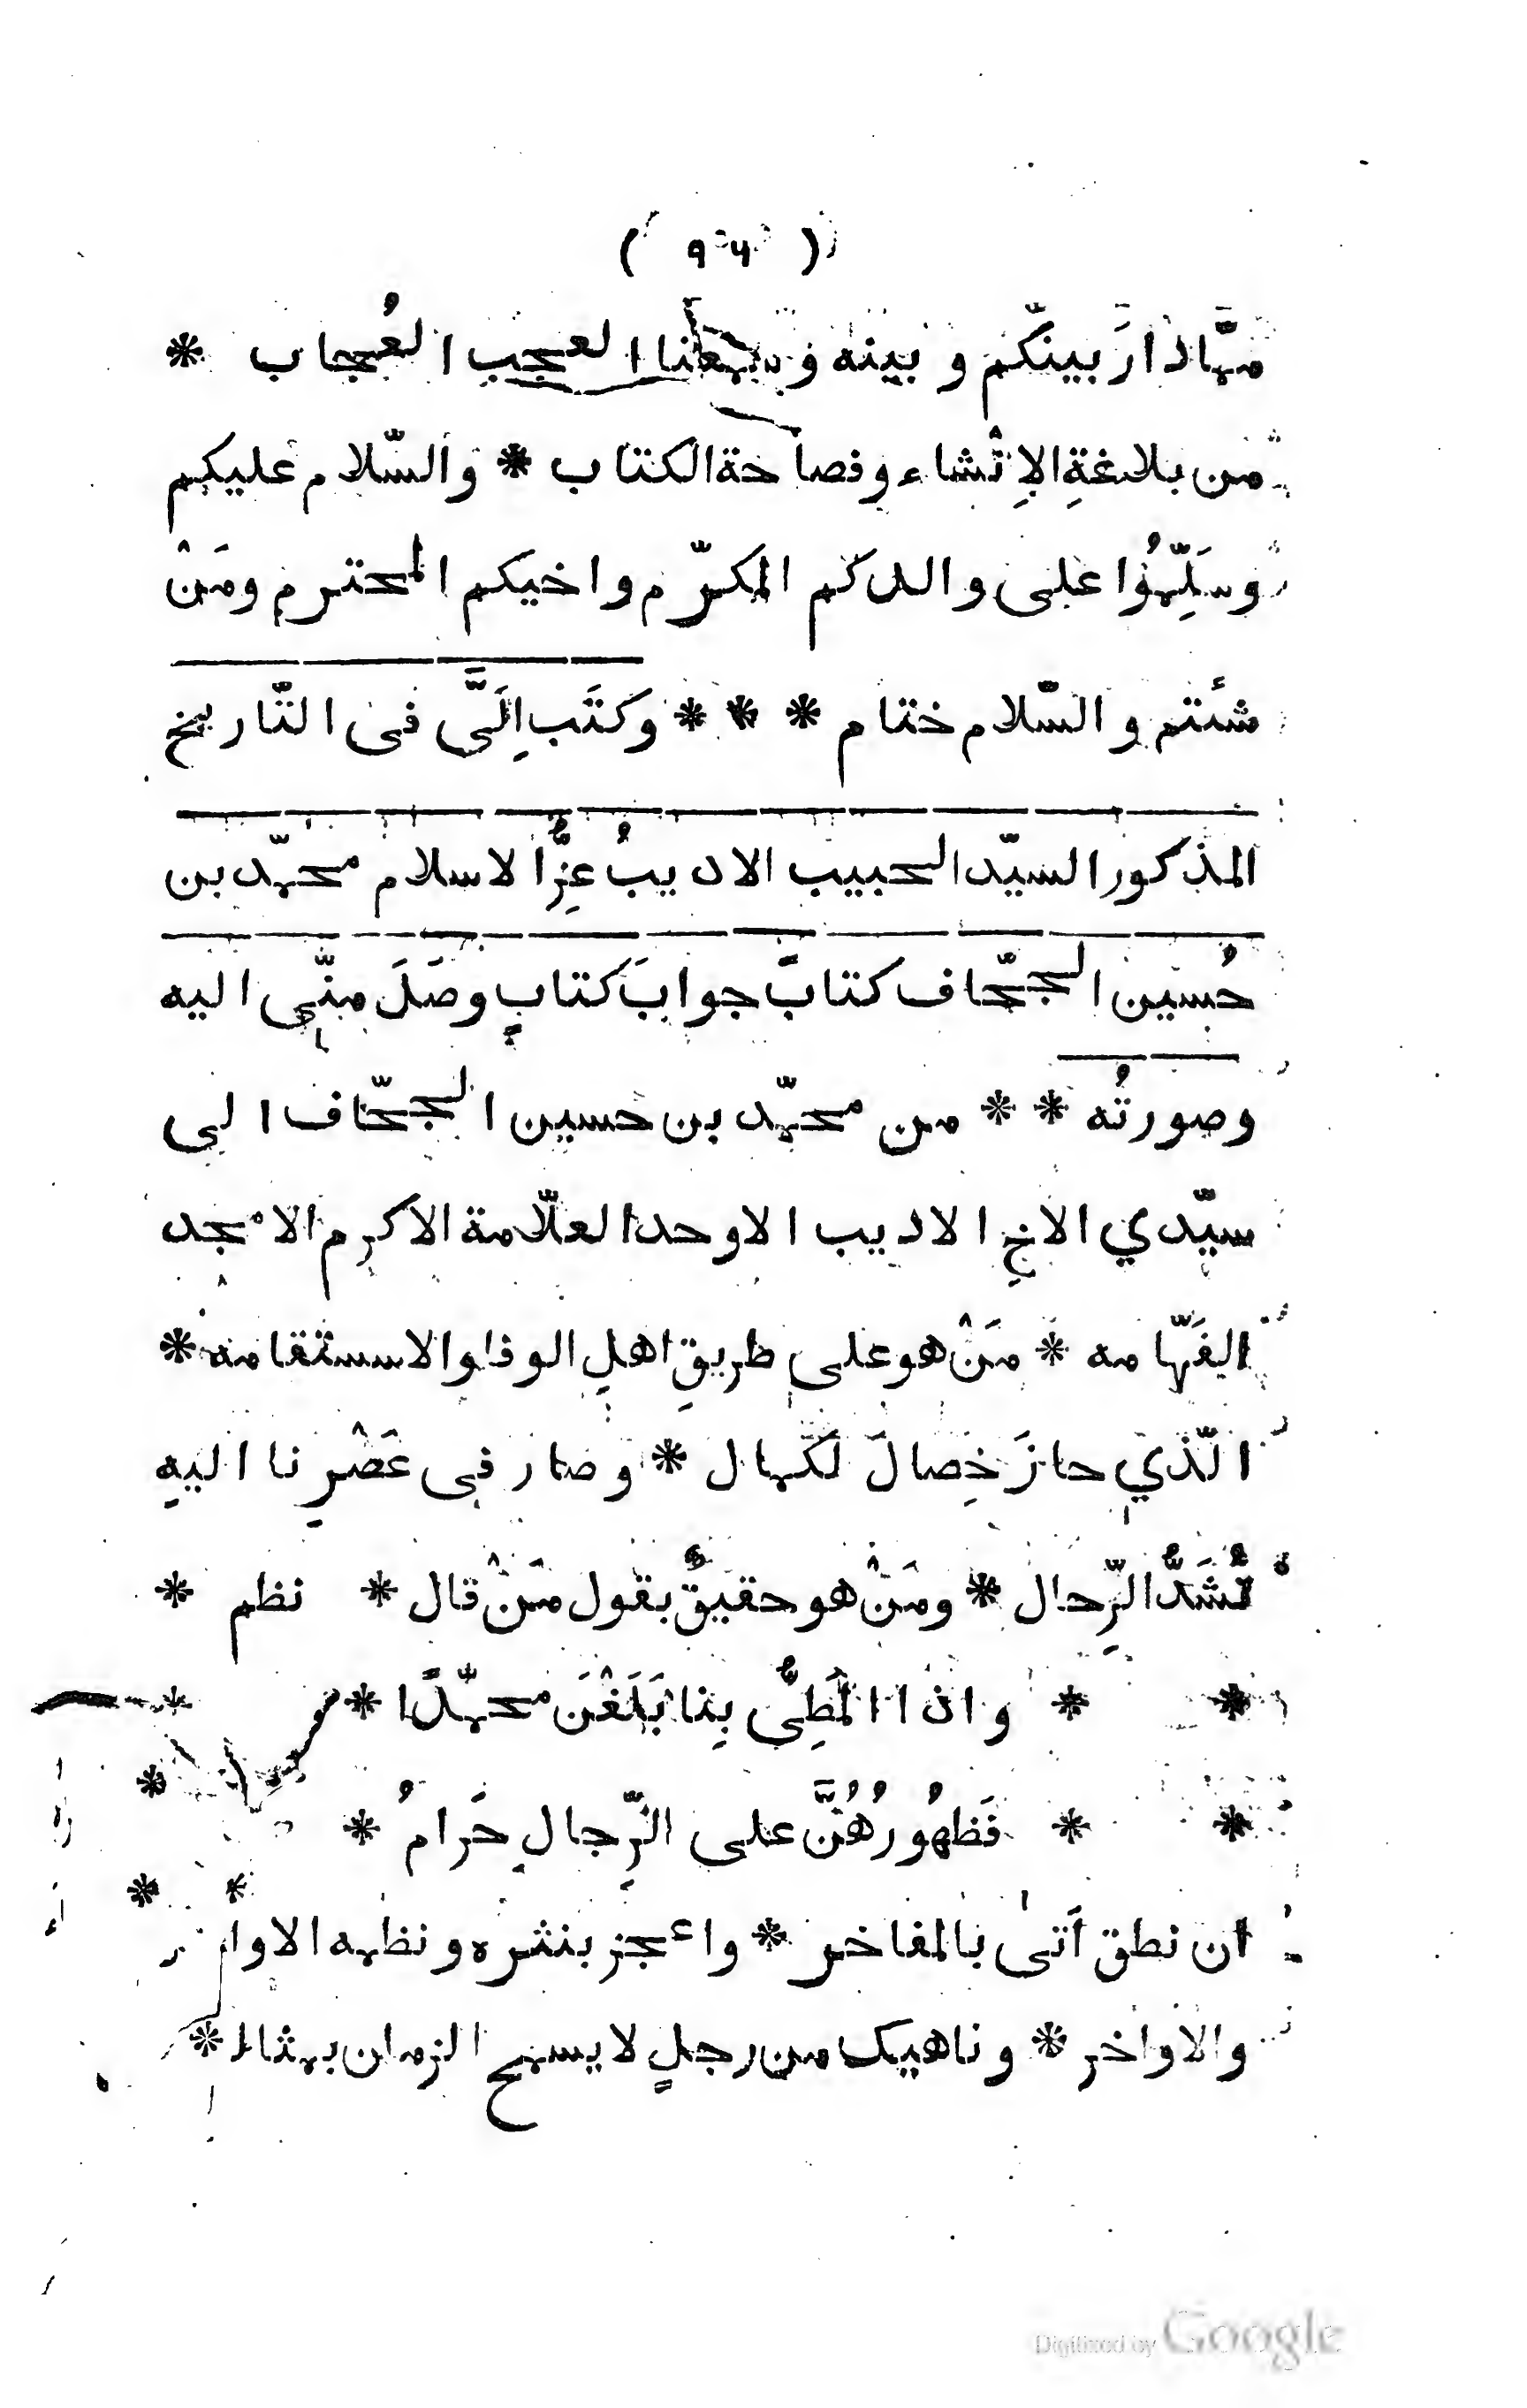 ( ٩٤ )
ممّا دارَ بينكُم و بينه وسمعنا العجب العُجاب *
من بلاغةِ الإنْشاء وفصاحة الكتاب * والسّلام عليكم
وسَلِّمُوا على والدكم المكرّم واخيكم المحترم ومَنْ
شئتم والسّلام ختام * * * وكتَب اِلَىَّ فى التّاريخ
المذكور السيّد الحبيب الاديبُ عِزُّ الاسلام محمّد بن
حُسين الجحّاف كتابًا جوابَ كتابٍ وصَلَ منّى اليه
وصورتُه * * من محمّد بن حسين الجحّاف الى
سيّدي الاخِ الاديب الاوحد العلّامة الاكرم الامجد
الفَهّامه * مَنْ هو على طريقِ اهلِ الوفا والاستقامه *
الّذي حازَ خِصالَ لكمال * وصار فى عَصْرِنا اليهِ
تُشَدُّ الرِّحال * ومَنْ هو حقيقٌ بقول مَنْ قال * نظم *
* * واذا المَطِىُّ بِنا بَلَغْنَ محمّدًا * *
* * فَظهُورُهُنَّ على الرِّجالِ حَرامُ * *
ان نطق أتى بالمفاخر * واعجز بنثره ونظمه الاوائل
والاواخر * وناهيك من رجلٍ لا يسمح الزمان بمثاله *
Digitized by Google